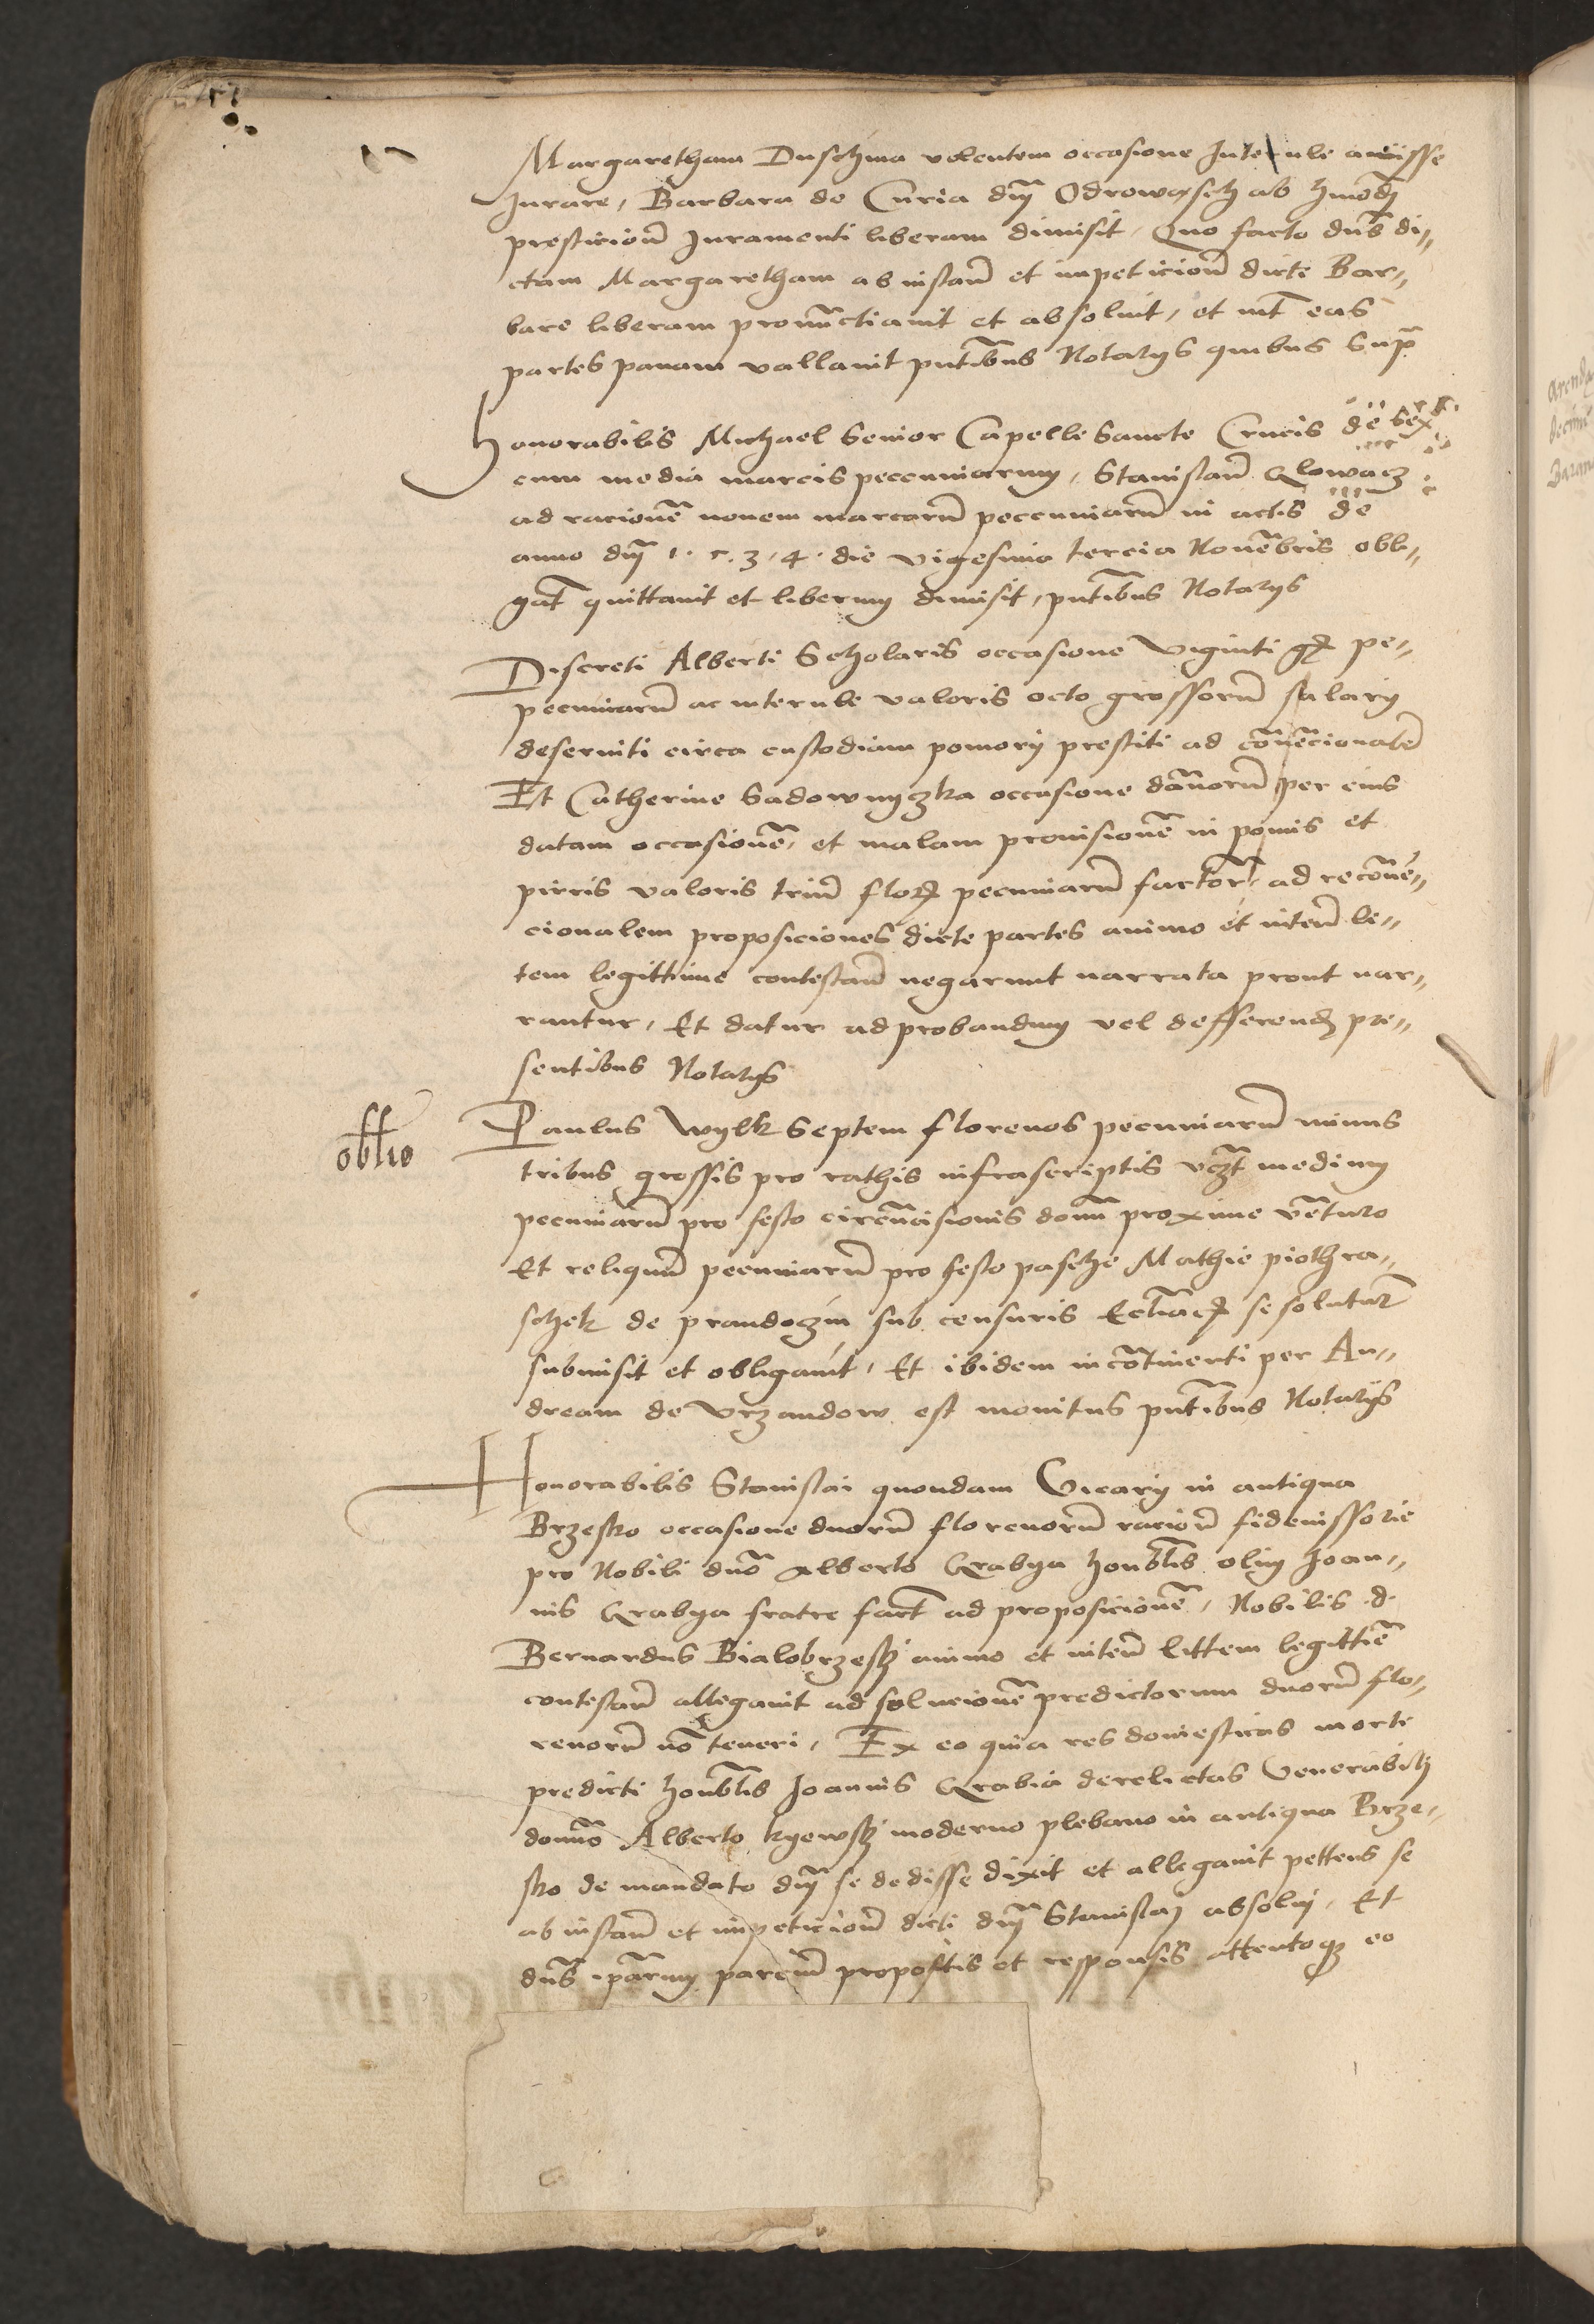 Margaretham Duschina volentem occasione Interule amisse
Jurare, Barbara de Curia dnj Odrowąsch ab hmodj
presticione Juramenti liberam dimisit, Quo facto dns di„
ctam Margaretham ab instan et impeticione dicte Bar„
bare liberam pronunctiavit et absoluit, et int eas
partes penam vallavit pntibus Notarys quibus Supra
honorabilis Michael Senior Capelle Sancte Crucis de Sex
cum media marcis pecuniarum, Stanislaum Glowacz
ad racione novem marcarum pecuniarum in actis de
anno dnj 1.5.3.4. die vigesima tercia Novembris obli„
gat quittavit et liberum dimisit, pntibus Notarys
Discreti Alberti Scholaris occasione Viginti gr pe„
pecuniarum ac interule valoris octo grossorum salary
deserviti circa custodiam pomory prestiti ad convencionalem
Et Catherine Sadownyczka occasione damnorum per eius
datam occasione, et malam provisione in pomis et
pirris valoris trium flor pecuniarum factor, ad reconven„
cionalem proposiciones dicte partes animo et inten li„
tem legittime contestan negarunt narrata prout nar„
rantur, Et datur ad probandum vel defferend pre„
sentibus Notarys
obllio
Paulus Wylk Septem florenos pecuniarum minus
tribus grossis pro rathis infrascriptis vczt medium
pecuniarum pro festo circumcisionis domini proxime venturo
Et reliquum pecuniarum pro festo pasche Mathie piothra„
schek de prandoczin sub censuris Ecclesiasticis se soluturum
submisit et obligavit, Et ibidem incontinenti per An„
dream de Vrzandow est monitus pntibus Notarys
Honorabilis Stanislai quondam Vicary in antiqua
Brzesko occasione duorum florenorum racione fideiussorie
pro Nobili dno Alberto Grabya honorabilis olim Joan„
nis Grabya fratre fact ad proposicione, Nobilis .d.
Bernardus Bialobrzeskj animo et inten littem legittime
contestan allegavit ad solucione predictorum duorum flo„
renorum non teneri, Ex eo quia res domesticas morte
predicti honorabilis Joannis Grabia derelictas Venerabilj
domino Alberto kyewskj moderno plebano in antiqua Brze„
sko de mandato dnj se dedisse dixit et allegavit pettens se
ab instan et impeticione dicti dnj Stanislaj absolvj, Et
dns parcium propositis et responsis attentoque eo